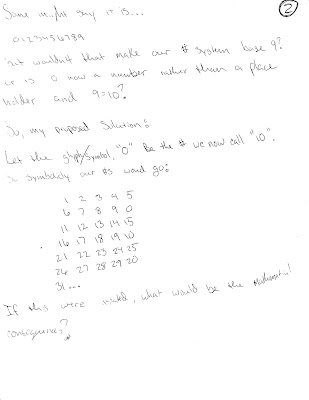 Some might say it is...
2
0123456789
but wouldn't that make our # system base 9?
or is 0 now a number rather than a place
holder and 9=10?
So, my proposed solution:
Let the glyph/symbol, "0" Be the # we now call "10".
So symbolicly our #s would go:
1 2 3 4 5
6 7 8 9 0
11 12 13 14 15
16 17 18 19 10
21 22 23 24 25
26 27 28 29 20
31...
If this were valid, what would be the mathematical
consequences?